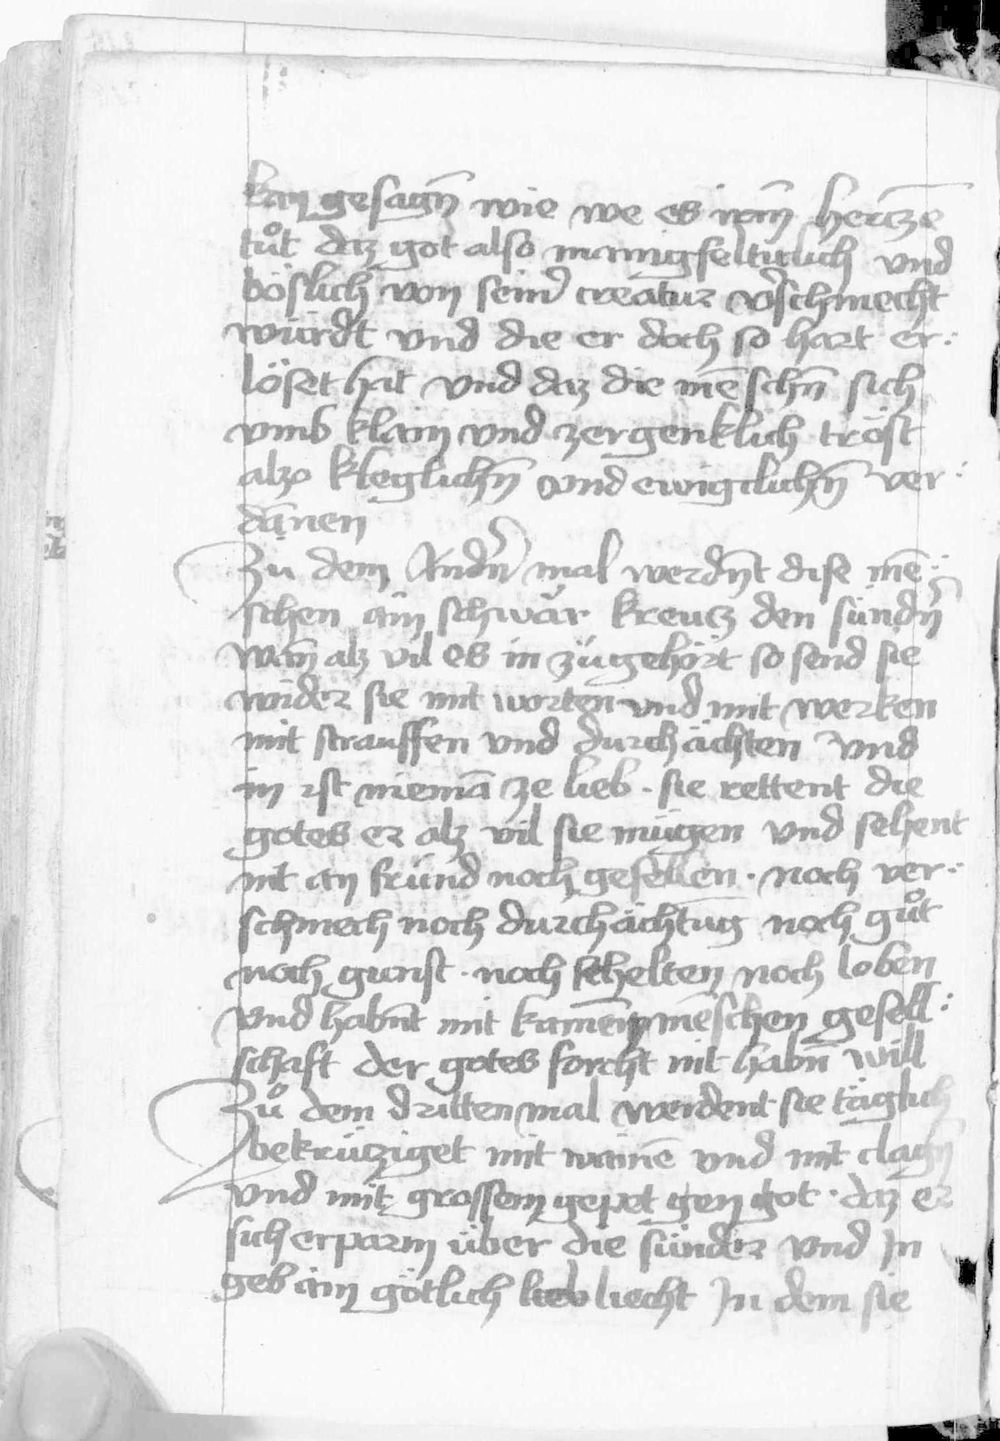 kan gesagn̄ wie we es irm̄ hercze
tůt daz got also manigfeltiglich vnd
böslich von seinr̄ creatur v̄schmecht
würdt vnd die er doch so hart er⸗
löset hat vnd daz die mēschn̄ sich
vmb klain vnd zergenklich tröst
alzo kleglichn̄ vnd ewigclichn̄ ver⸗
damnen
Zu dem Andn̄ mal werdn̄t dise mē⸗
schen ain schwär kreutz den sündn̄
wan̄ alz vil es in zügehört so send sie
wider sie mit worten vnd mit werken
mit strauffen vnd durchächten vnd
in ist niemā ze lieb · sie rettent die
gotes er alz vil sie mügen vnd sehent
nit an fründ noch gesellen · noch ver⸗
schmech noch durchächtūg noch gůt
noch gunst · noch schelten noch loben
vnd habnt̄ mit kainem mēschen gesell⸗
schaft der gotes forcht nit habn̄ will
Zů dem dritten mal werdent sie täglich
bekrütziget mit wainē vnd mit clagn̄
vnd mit grossem gepet gen got · daz er
sich erparm über die sünder vnd In
geb ain götlich liecht In dem sie